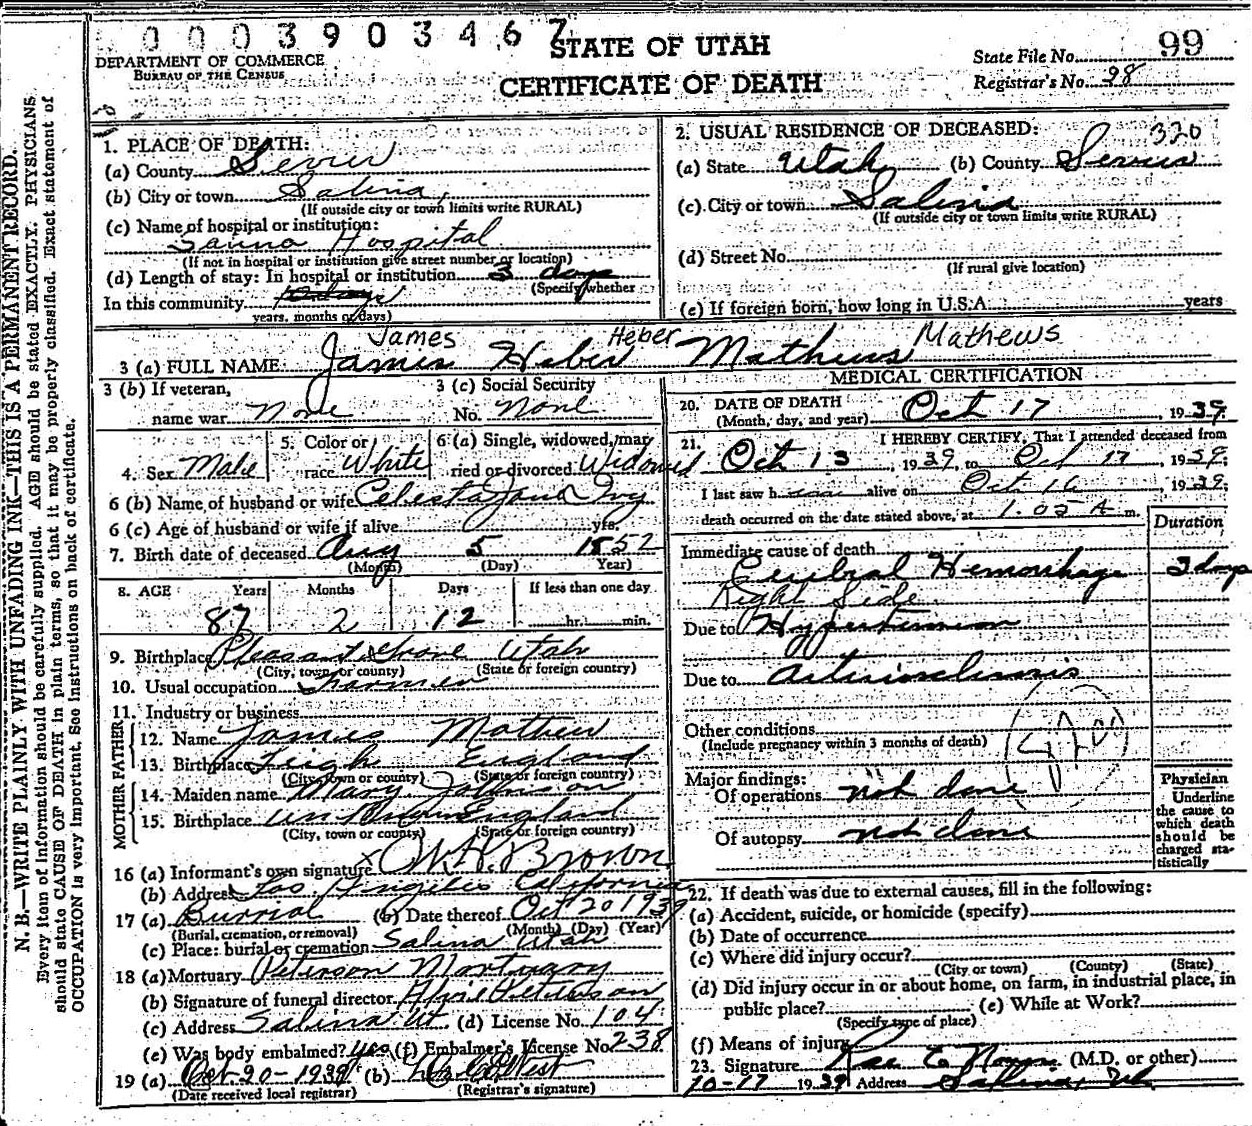 0003903467
STATE OF UTAH
CERTIFICATE OF DEATH
DEPARTMENT OF COMMERCE
BUREAU OF THE CENSUS
State File No. 99
Registrar's No. 28
N. B.—WRITE PLAINLY WITH UNFADING INK—THIS IS A PERMANENT RECORD.
Every item of information should be carefully supplied. AGE should be stated EXACTLY. PHYSICIANS
should state CAUSE OF DEATH in plain terms, so that it may be properly classified. Exact statement of
OCCUPATION is very important. See instructions on back of certificate.
1. PLACE OF DEATH:
(a) County Sevier
(b) City or town Salina,
(If outside city or town limits write RURAL)
(c) Name of hospital or institution:
Salina Hospital
(If not in hospital or institution give street number or location)
(d) Length of stay: In hospital or institution 3 days
(Specify whether
In this community
years, months or days)
2. USUAL RESIDENCE OF DECEASED: 320
(a) State Utah (b) County Sevier
(c) City or town Salina
(If outside city or town limits write RURAL)
(d) Street No.
(If rural give location)
(e) If foreign born, how long in U.S.A. years
James Heber Mathews
3 (a) FULL NAME: James Heber Mathews
3 (b) If veteran,
name war None
3 (c) Social Security
No. None
4. Sex Male
5. Color or
race White
6 (a) Single, widowed, mar
ried or divorced Widowed
6 (b) Name of husband or wife Celesta Jane Ivy
6 (c) Age of husband or wife if alive yrs.
7. Birth date of deceased Aug 5 1852
(Month) (Day) Year)
8. AGE Years Months Days If less than one day
87 2 12 hr. min.
9. Birthplace Pleasant Grove Utah
(City, town or county) (State or foreign country)
10. Usual occupation Farmer
11. Industry or business
FATHER
12. Name James Mathew
13. Birthplace Leigh England
(City, town or county) (State or foreign country)
MOTHER
14. Maiden name Mary Johnson
15. Birthplace England
(City, town or county) (State or foreign country)
16 (a) Informant's own signature x O.K.H. Brown
(b) Address Los Angeles California
17 (a) Burrial (b) Date thereof Oct 20 1939
(Burial, cremation, or removal) (Month) (Day) (Year)
(c) Place: burial or cremation Salina Utah
18 (a) Mortuary Peterson Mortuary
(b) Signature of funeral director
(c) Address Salina Ut. (d) License No. 104
(e) Was body embalmed? yes (f) Embalmer's License No. 238
19 (a) Oct. 20-1939 (b) West
(Date received local registrar) (Registrar's signature)
MEDICAL CERTIFICATION
20. DATE OF DEATH Oct 17, 1939.
(Month, day, and year)
21. I HEREBY CERTIFY, That I attended deceased from
Oct 13, 1939, to Oct 17, 1939.
I last saw h alive on Oct 16, 1939.
death occurred on the date stated above, at 1:02 A m.
Duration
Immediate cause of death
Cerebral Hemorrhage 3 days
Right Side
Due to Hypertension
Due to Arteriosclerosis
Other conditions
(Include pregnancy within 3 months of death)
Major findings:
Of operations not done
Of autopsy not done
Physician
Underline
the cause to
which death
should be
charged sta-
tistically
22. If death was due to external causes, fill in the following:
(a) Accident, suicide, or homicide (specify)
(b) Date of occurrence
(c) Where did injury occur?
(City or town) (County) (State)
(d) Did injury occur in or about home, on farm, in industrial place, in
public place? (e) While at Work?
(Specify type of place)
(f) Means of injury
23. Signature Rae E Noyes (M.D. or other)
10-17 1939 Address Salina, Ut.